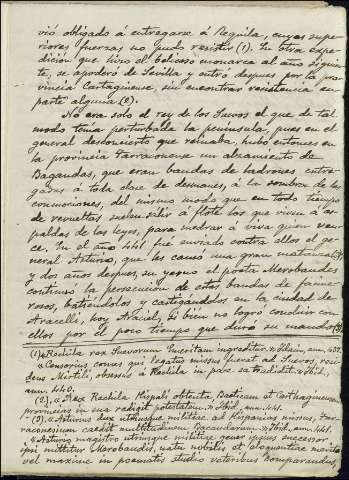 vió obligado á entregarse á Requila, cuyas supe-
riores fuerzas no pudo resistir (1). En otra expe-
dición que hizo el belicoso monarca al año siguien-
te, se apoderó de Sevilla y entró despues por la pro-
vincia Cartaginense, sin encontrar resistencia en
parte alguna (2).
No era solo el rey de los Suevos el que de tal
modo tenía perturbada la península, pues en el
general desconcierto que reinaba, hubo entonces en
la provincia Tarraconense un alzamiento de
Bagaudas, que eran bandas de ladrones entre-
gados á toda clase de desmanes, á la sombra de las
conmociones, del mismo modo que en todo tiempo
de revueltas suelen salir á flote los que viven á es-
paldas de las leyes, para medrar á viva quien ven-
ce. En el año 441 fué enviado contra ellos el ge-
neral Asturio, que les causó una gran matanza (3)
y dos años despues, su yerno el poeta Merobaudes
continuó la persecucion de estas bandas de facine-
rosos, batiéndolos y castigándolos en la ciudad de
Aracelli, hoy Araciel, si bien no logró concluir con
ellos por el poco tiempo que duró su mando (4)
(1) « Rechila rex Suevorum Emeritam ingreditur. » Idacio, ann. 439.
« Censorius comes qui legatus missus fuerat ad Suevos, resi-
dens Mirtili, obsessus á Rechila in pace se tradidit. » Ibid.,
ann. 440.
(2) « Rex Rechila Hispali obtenta Baeticam et Carthaginensem
provincias in suam redigit potestatem. » Ibid., ann. 441.
(3) « Asturius dux utriusque militiae ad Hispanias missus, Tar-
raconensium caedit multitudinem Bacaudarum. » Ibid., ann. 441.
« Asturio magistro utriusque militiae gener ipsius successor
ipsi mittitur Merobaudis, natu nobilis et eloquentiae merito
vel maxime in poematis studio veteribus comparandus,